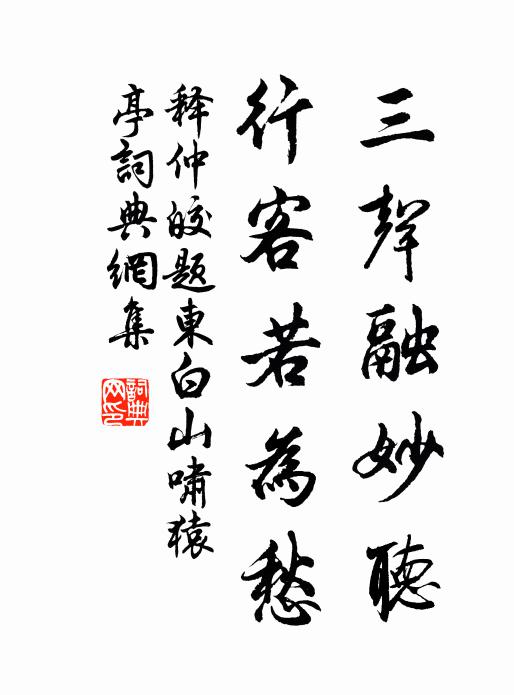 三聲融妙聽
行客若為愁
释仲皎題東白山嘯猿
亭詞典網集
詞典网印